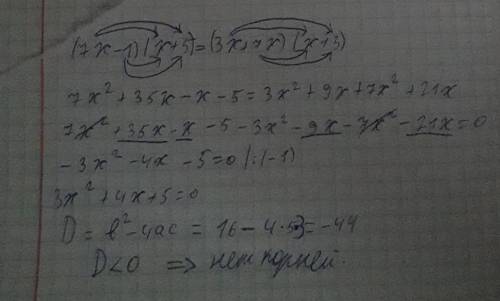 (7x-1)(x+5)=(3x+7x)(x+3)
7x²+35x-x-5=3x²+9x+7x²+21x
7x²+35x-x-5-3x²-9x-7x²-21x=0
-3x²-4x-5=0 |:(-1)
3x²+4x+5=0
D=b²-4ac=16-4·53=-44
D<0 => нет корней.